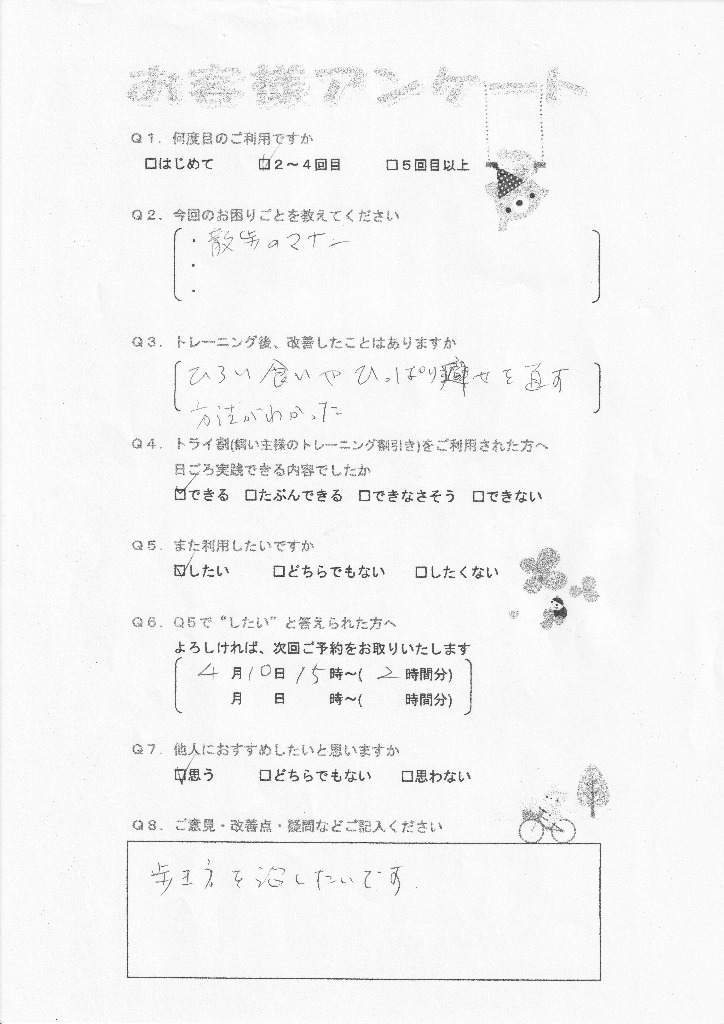 お客様アンケート
Q1. 何度目のご利用ですか
□はじめて ☑2～4回目 □5回目以上
Q2. 今回のお困りごとを教えてください
・散歩のマナー
・
・
Q3. トレーニング後、改善したことはありますか
ひろい食いやひっぱり癖せを直す
方法がわかった
Q4. トライ割(飼い主様のトレーニング割引き)をご利用された方へ
日ごろ実践できる内容でしたか
☑できる □たぶんできる □できなさそう □できない
Q5. また利用したいですか
☑したい □どちらでもない □したくない
Q6. Q5で“したい”と答えられた方へ
よろしければ、次回ご予約をお取りいたします
4月10日15時～(2時間分)
月 日 時～( 時間分)
Q7. 他人におすすめしたいと思いますか
☑思う □どちらでもない □思わない
Q8. ご意見・改善点・疑問などご記入ください
歩き方を治したいです.